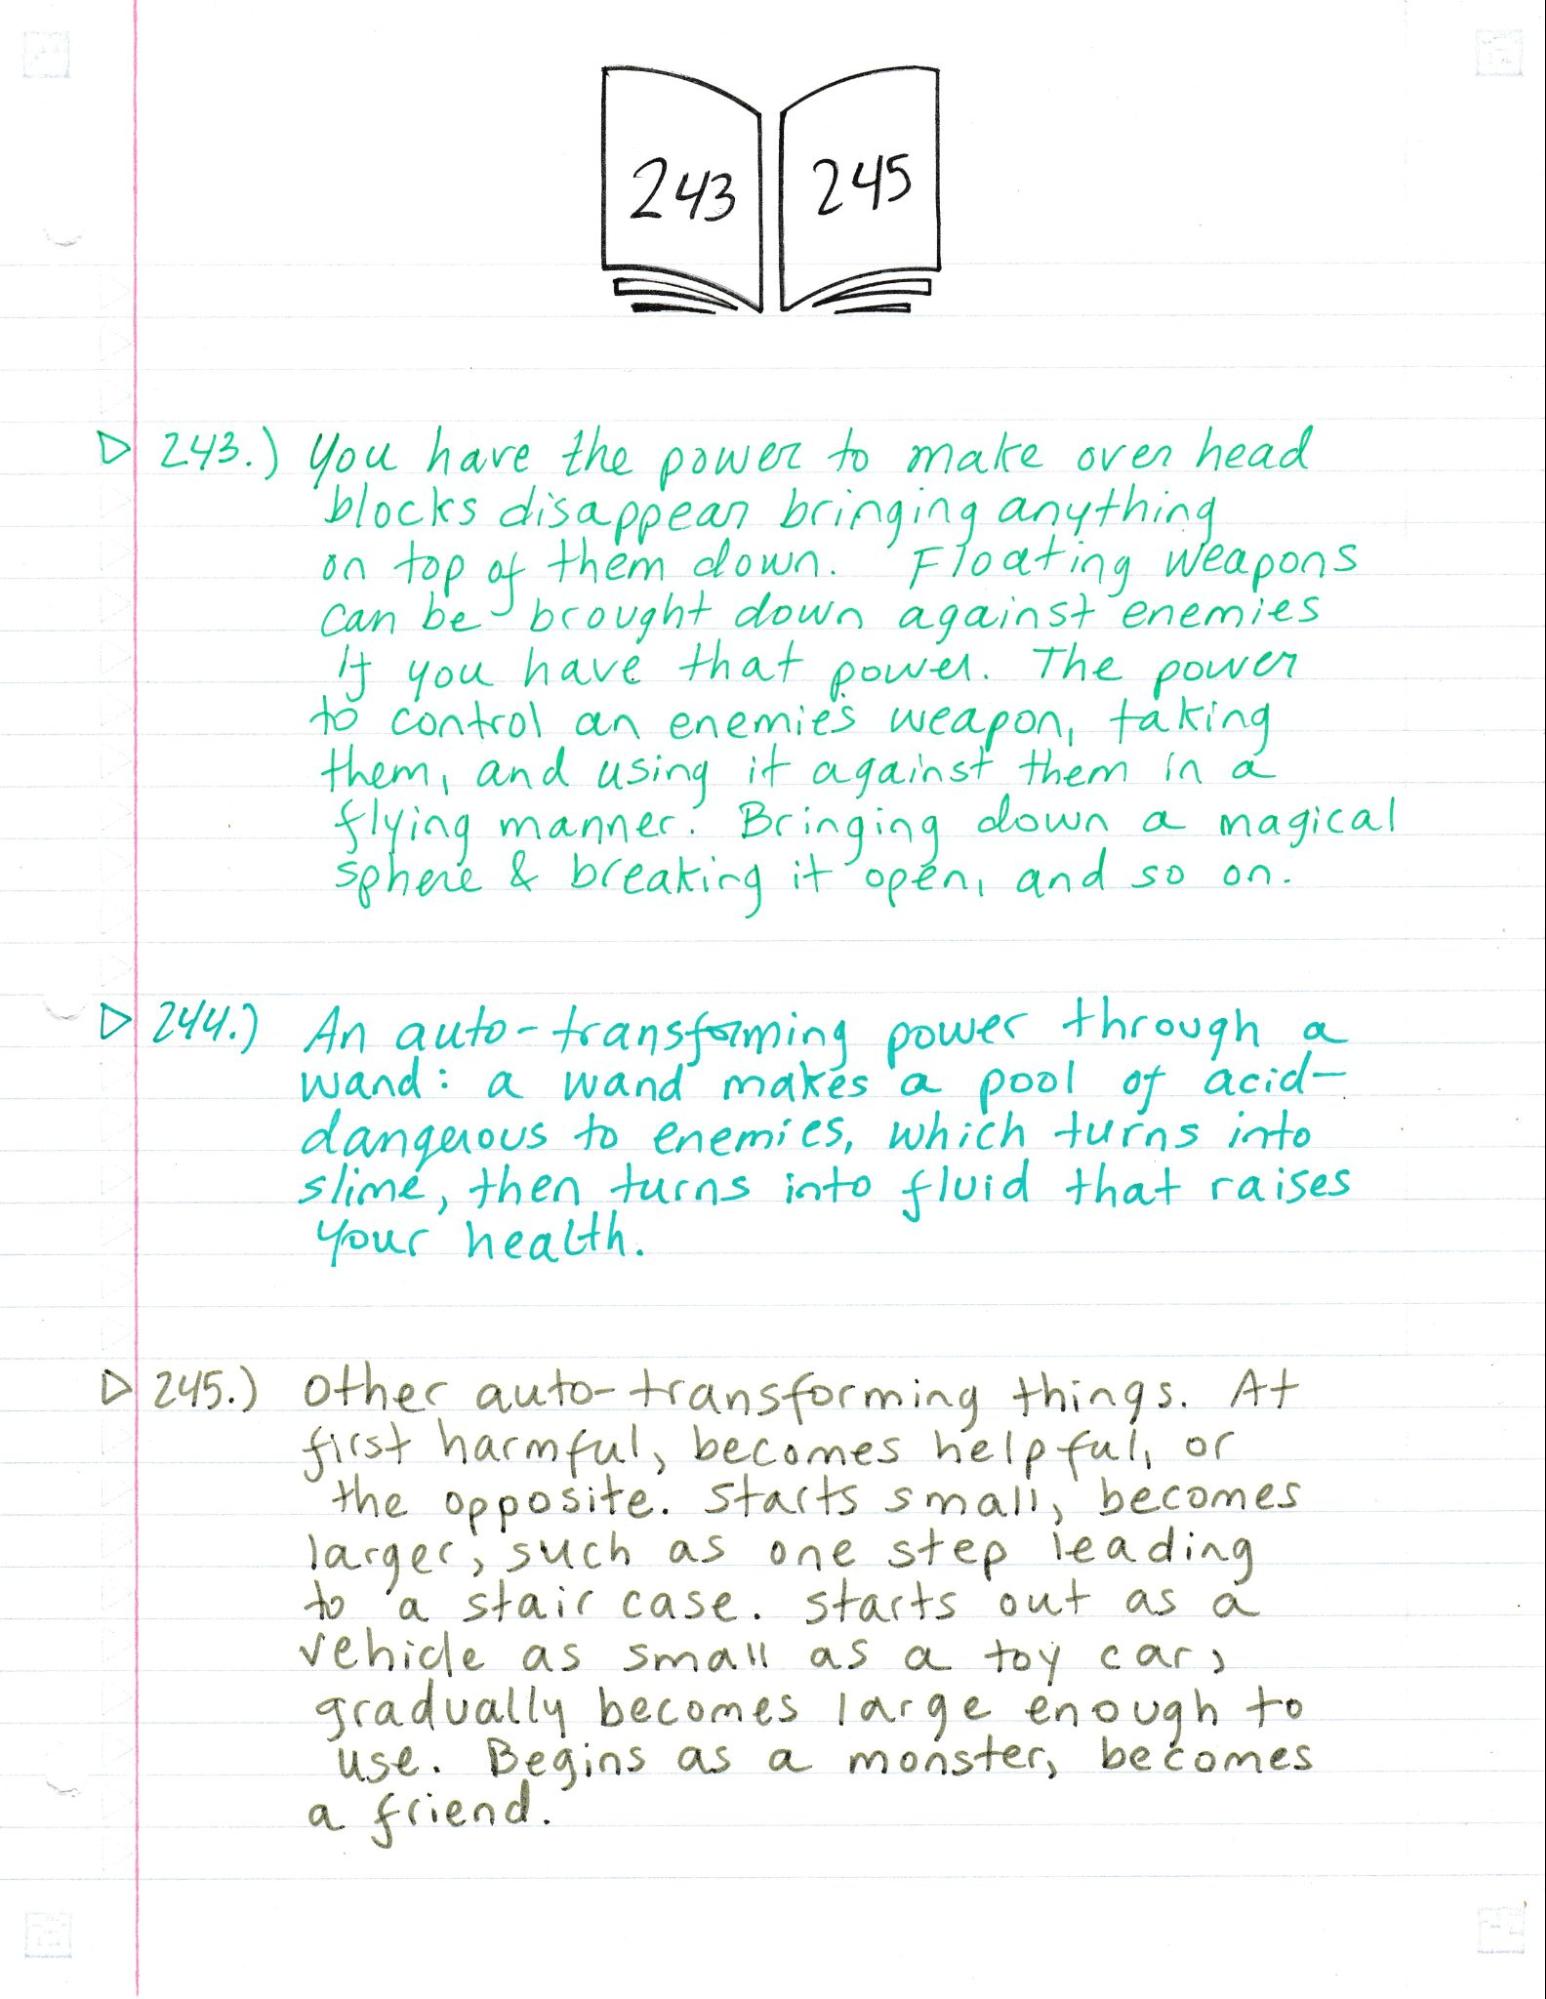 243 245
▷ 243.) You have the power to make over head
blocks disappear bringing anything
on top of them down. Floating weapons
can be brought down against enemies
If you have that power. The power
to control an enemie's weapon, taking
them, and using it against them in a
flying manner. Bringing down a magical
sphere & breaking it open, and so on.
▷ 244.) An auto-transforming power through a
wand: a wand makes a pool of acid-
dangerous to enemies, which turns into
slime, then turns into fluid that raises
your health.
▷ 245.) Other auto-transforming things. At
first harmful, becomes helpful, or
the opposite. Starts small, becomes
larger, such as one step leading
to a stair case. Starts out as a
vehicle as small as a toy car,
gradually becomes large enough to
use. Begins as a monster, becomes
a friend.